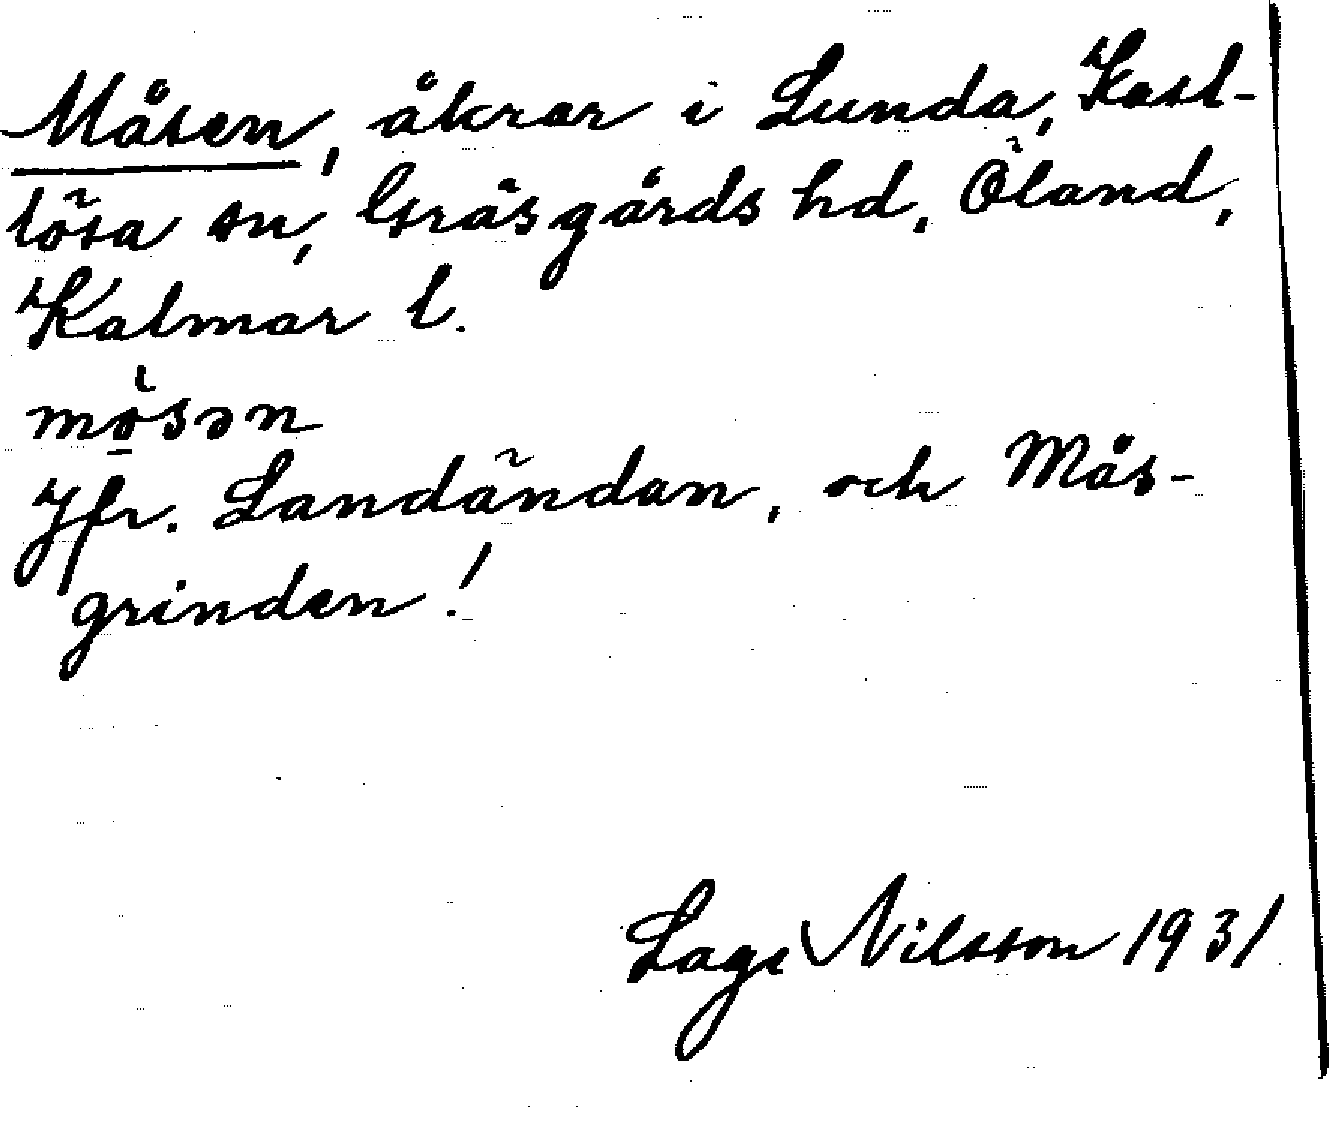 Måsen, åkrar i Lunda, Kast-
lösa sn, Gräsgårds hd. Öland,
Kalmar l.
mȯ̱sən
Jfr. Landändan, och Mås-
grinden!
Lage Nilsson 1931